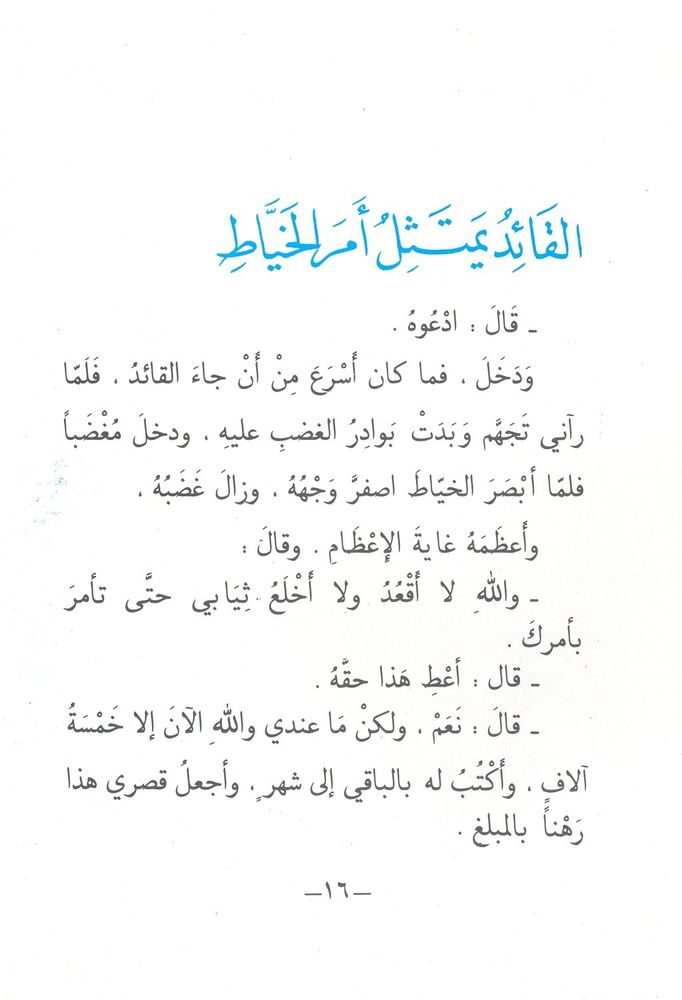 القَائِدُ يَمتَثِلُ أَمرَ الخَيَّاطِ
ـ قَالَ : ادْعُوهُ .
وَدَخَلَ ، فما كان أَسْرَعَ مِنْ أَنْ جاءَ القائدُ ، فَلَمّا
رآني تَجَهَّم وَبَدَتْ بَوادِرُ الغضبِ عليهِ ، ودخلَ مُغْضَباً
فلمّا أبْصَرَ الخيّاطَ اصفرَّ وَجْهُهُ ، وزالَ غَضَبُهُ ،
وأَعظَمَهُ غايةَ الإِعْظَامِ . وقالَ :
ـ واللهِ لا أَقْعُدُ ولا أَخْلَعُ ثِيَابي حتَّى تأمرَ
بأمركَ .
ـ قال : أعْطِ هَذا حقَّهُ .
ـ قالَ : نَعَمْ ، ولكنْ مَا عندي واللهِ الآنَ إلا خَمْسَةُ
آلافٍ ، وأَكْتُبُ له بالباقي إلى شهرٍ ، وأجعلُ قصري هذا
رَهْناً بالمبلغِ .
—١٦—